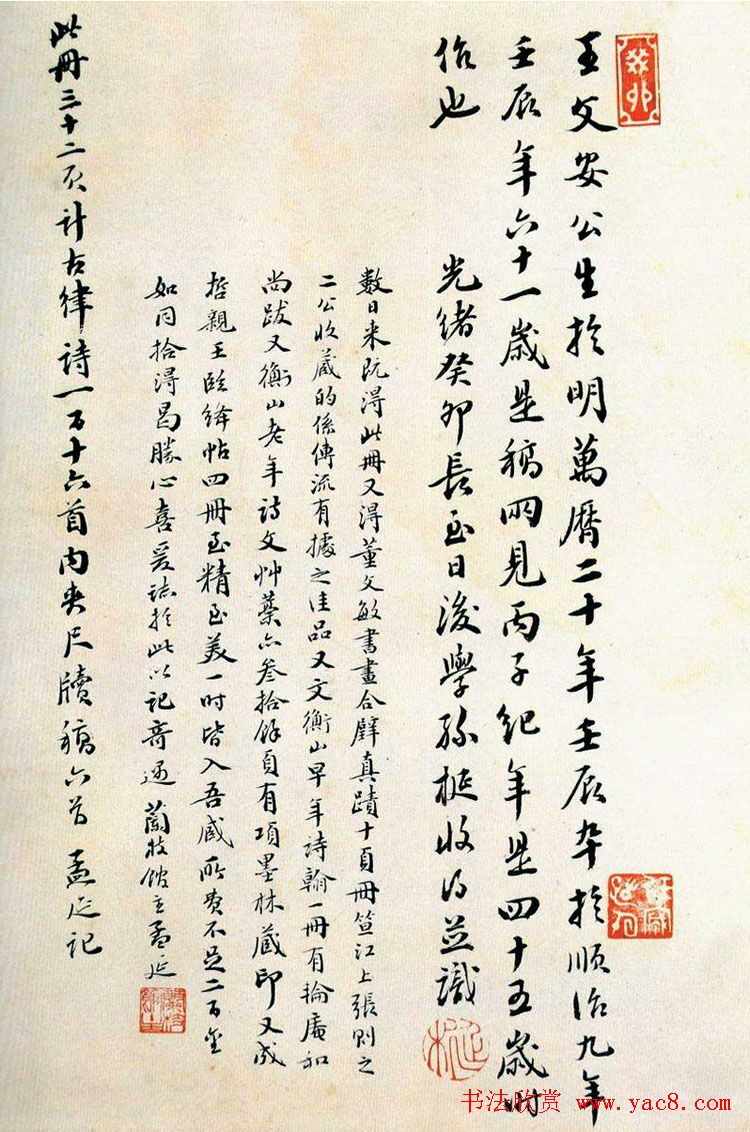 王文安公生於明萬曆二十年壬辰卒於順治九年
壬辰年六十一歲是稿兩見丙子紀年是四十五歲時
作也
光緒癸卯長至日後學孫梃收得並識
數日来既得此冊又得董文敏書畫合璧真蹟十頁冊笪江上張則之
二公收藏的係傳流有據之佳品又文衡山早年詩翰一冊有掄庵和
尚跋又衡山老年詩文艸藁六叁拾餘頁有項墨林藏印又成
哲親王臨絳帖四冊至精至美一時皆入吾藏所費不足二百金
如同拾得曷勝心喜爰誌於此以記奇遇 蘭枝館主孟延
此冊三十二頁計古律詩一百十六首內夾尺牘稿六首 孟延記
癸卯
书法欣赏 www.yac8.com